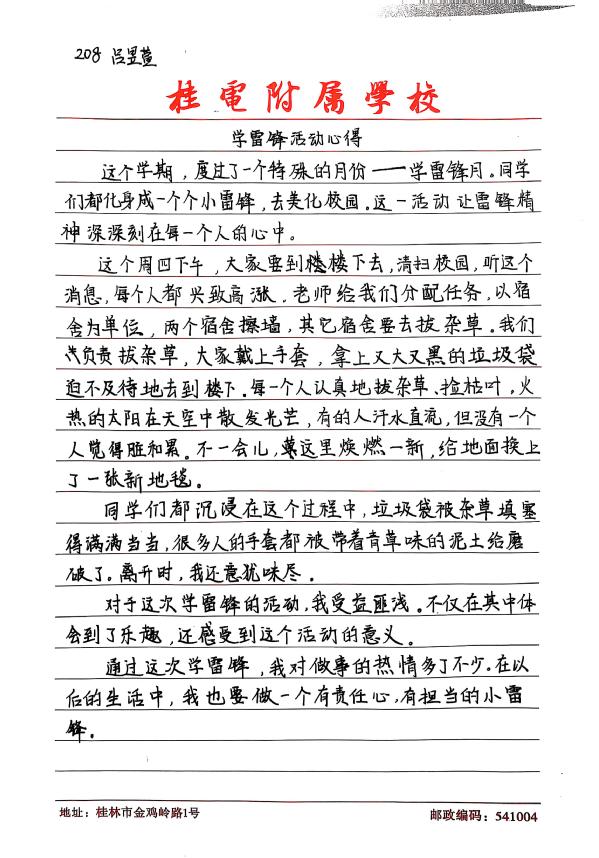 208 吕昱萱
桂電附属學校
学雷锋活动心得
这个学期，度过了一个特殊的月份——学雷锋月。同学
们都化身成一个个小雷锋，去美化校园。这一活动让雷锋精
神深深刻在每一个人的心中。
这个周四下午，大家要到楼下去，清扫校园，听这个
消息，每个人都兴致高涨，老师给我们分配任务，以宿
舍为单位，两个宿舍擦墙，其它宿舍要去拔杂草。我们
负责拔杂草，大家戴上手套，拿上又大又黑的垃圾袋
迫不及待地去到楼下。每一个人认真地拔杂草、捡枯叶，火
热的太阳在天空中散发光芒，有的人汗水直流，但没有一个
人觉得脏和累。不一会儿，这里焕燃一新，给地面换上
了一张新地毯。
同学们都沉浸在这个过程中，垃圾袋被杂草填塞
得满满当当，很多人的手套都被带着青草味的泥土给磨
破了。离开时，我还意犹味尽。
对于这次学雷锋的活动，我受益匪浅。不仅在其中体
会到了乐趣，还感受到这个活动的意义。
通过这次学雷锋，我对做事的热情多了不少。在以
后的生活中，我也要做一个有责任心，有担当的小雷
锋。
地址：桂林市金鸡岭路1号
邮政编码：541004